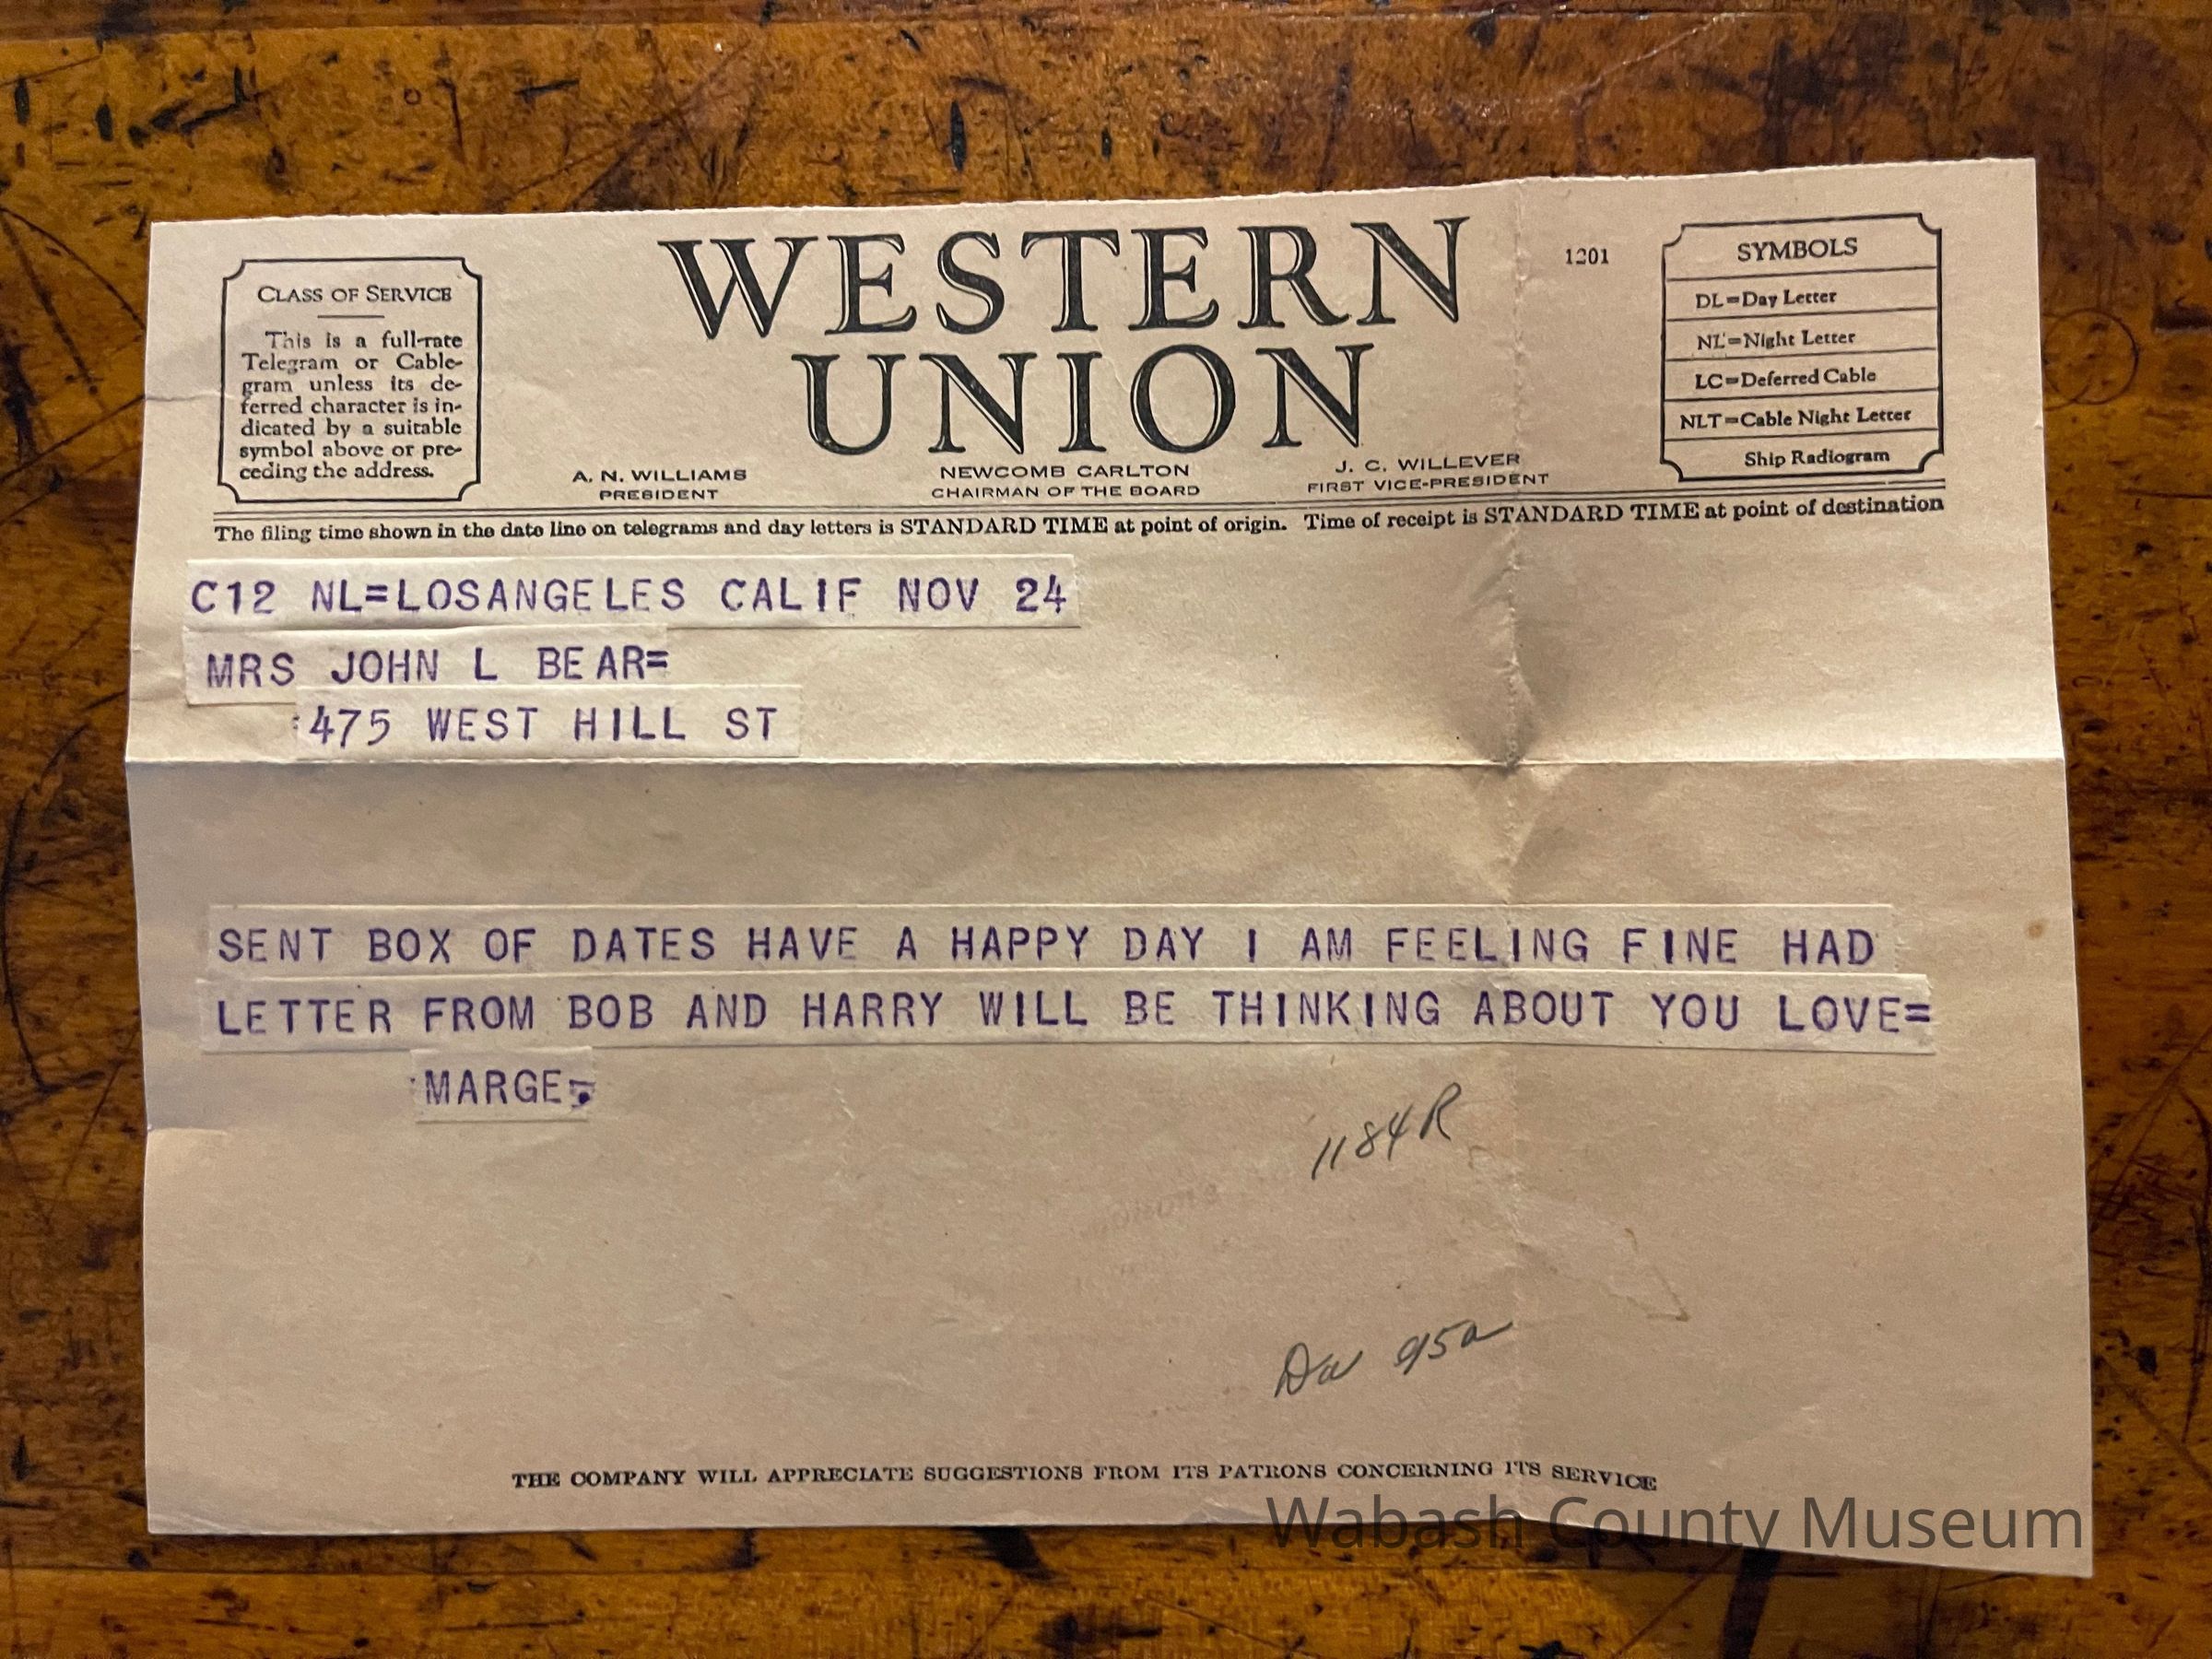 CLASS OF SERVICE
This is a full-rate
Telegram or Cable-
gram unless its de-
ferred character is in-
dicated by a suitable
symbol above or pre-
ceding the address.
WESTERN
UNION
1201
SYMBOLS
DL=Day Letter
NL=Night Letter
LC=Deferred Cable
NLT=Cable Night Letter
Ship Radiogram
A. N. WILLIAMS
PRESIDENT
NEWCOMB CARLTON
CHAIRMAN OF THE BOARD
J. C. WILLEVER
FIRST VICE-PRESIDENT
The filing time shown in the date line on telegrams and day letters is STANDARD TIME at point of origin. Time of receipt is STANDARD TIME at point of destination
C12 NL=LOSANGELES CALIF NOV 24
MRS JOHN L BEAR=
475 WEST HILL ST
SENT BOX OF DATES HAVE A HAPPY DAY I AM FEELING FINE HAD
LETTER FROM BOB AND HARRY WILL BE THINKING ABOUT YOU LOVE=
MARGE.
1184R
95a
THE COMPANY WILL APPRECIATE SUGGESTIONS FROM ITS PATRONS CONCERNING ITS SERVICE
Wabash County Museum